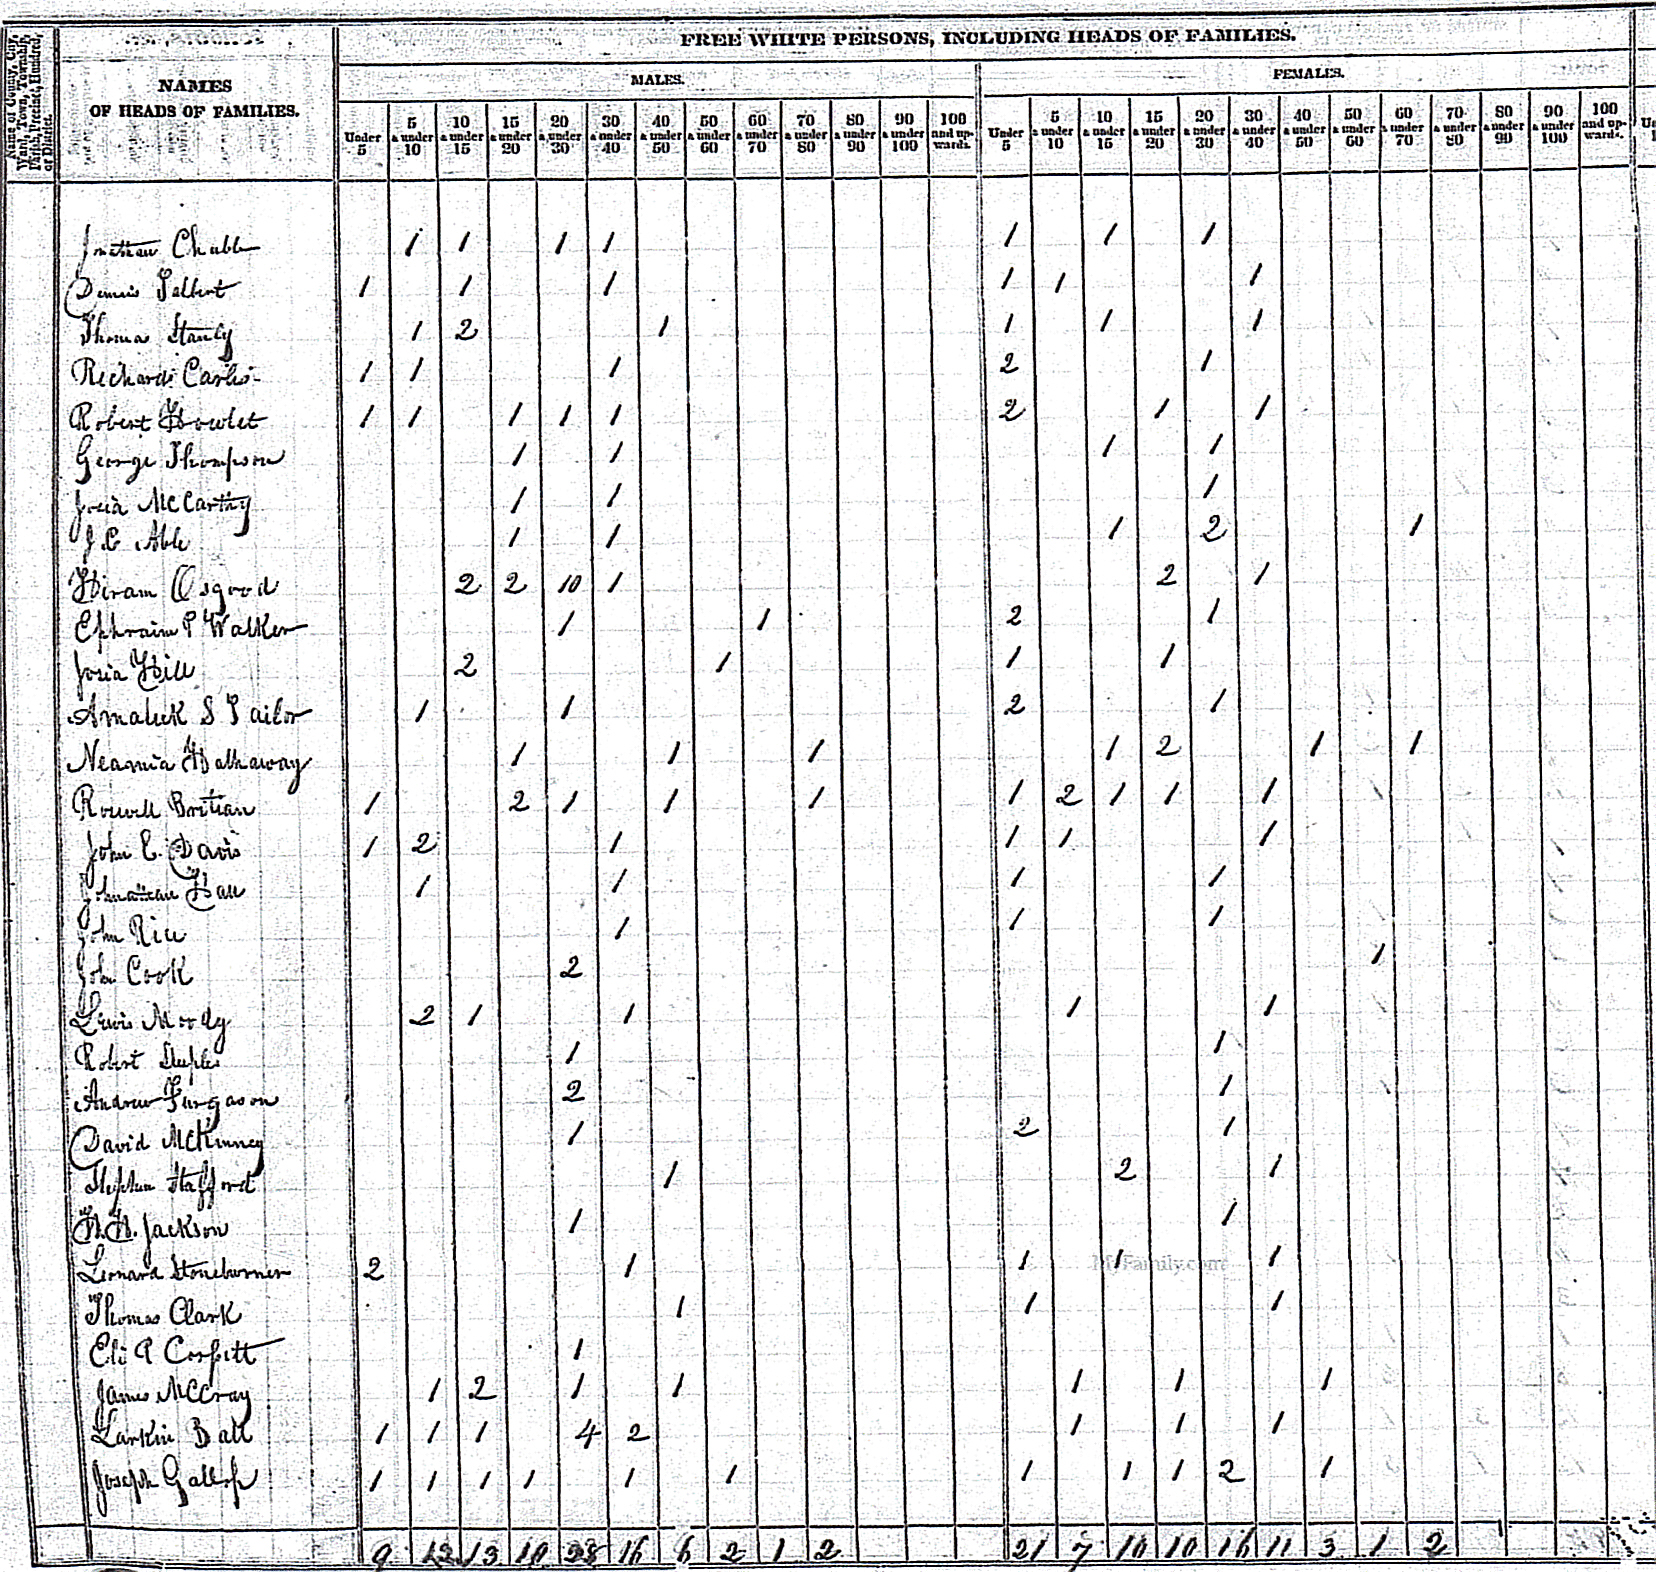 Name of County, City, Ward, Town, Township, Parish, Precinct, Hundred, or District.
NAMES
OF HEADS OF FAMILIES.
FREE WHITE PERSONS, INCLUDING HEADS OF FAMILIES.
MALES. FEMALES.
Under 5 5 & under 10 10 & under 15 15 & under 20 20 & under 30 30 & under 40 40 & under 50 50 & under 60 60 & under 70 70 & under 80 80 & under 90 90 & under 100 100 and upwards. Under 5 5 & under 10 10 & under 15 15 & under 20 20 & under 30 30 & under 40 40 & under 50 50 & under 60 60 & under 70 70 & under 80 80 & under 90 90 & under 100 100 and upwards.
Jonathan Chubb 1 1 1 1 1 1 1
Dennis Talbert 1 1 1 1 1 1
Thomas Stanly 1 2 1 1 1 1
Richard 1 1 1 2 1
Robert Howlet 1 1 1 1 1 2 1 1
George Thompson 1 1 1 1
Josia McCarthy 1 1 1
Able 1 1 1 2 1
Hiram Osgood 2 2 10 1 2 1
Ephraim P Walker 1 1 2 1
Josia Hill 2 1 1 1
S Tailor 1 1 2 1
Neamia Hathaway 1 1 1 1 2 1 1
1 2 1 1 1 1 2 1 1 1
John E. Davis 1 2 1 1 1 1
1 1 1 1
John Rice 1 1 1
John Cook 2 1
Lewis Moody 2 1 1 1 1
Robert 1 1
Andrew Furgason 2 1
David McKinney 1 2 1
Stephen Stafford 1 2 1
H. H. Jackson 1 1
Leonard Stoneburner 2 1 1 1 1
Thomas Clark 1 1 1
Eli A 1
James McCray 1 2 1 1 1 1 1
Larkin Ball 1 1 1 4 2 1 1 1
Joseph Gallop 1 1 1 1 1 1 1 1 1 2 1
9 12 13 10 28 16 6 2 1 2 21 7 10 10 16 11 3 1 2
MyFamily.com